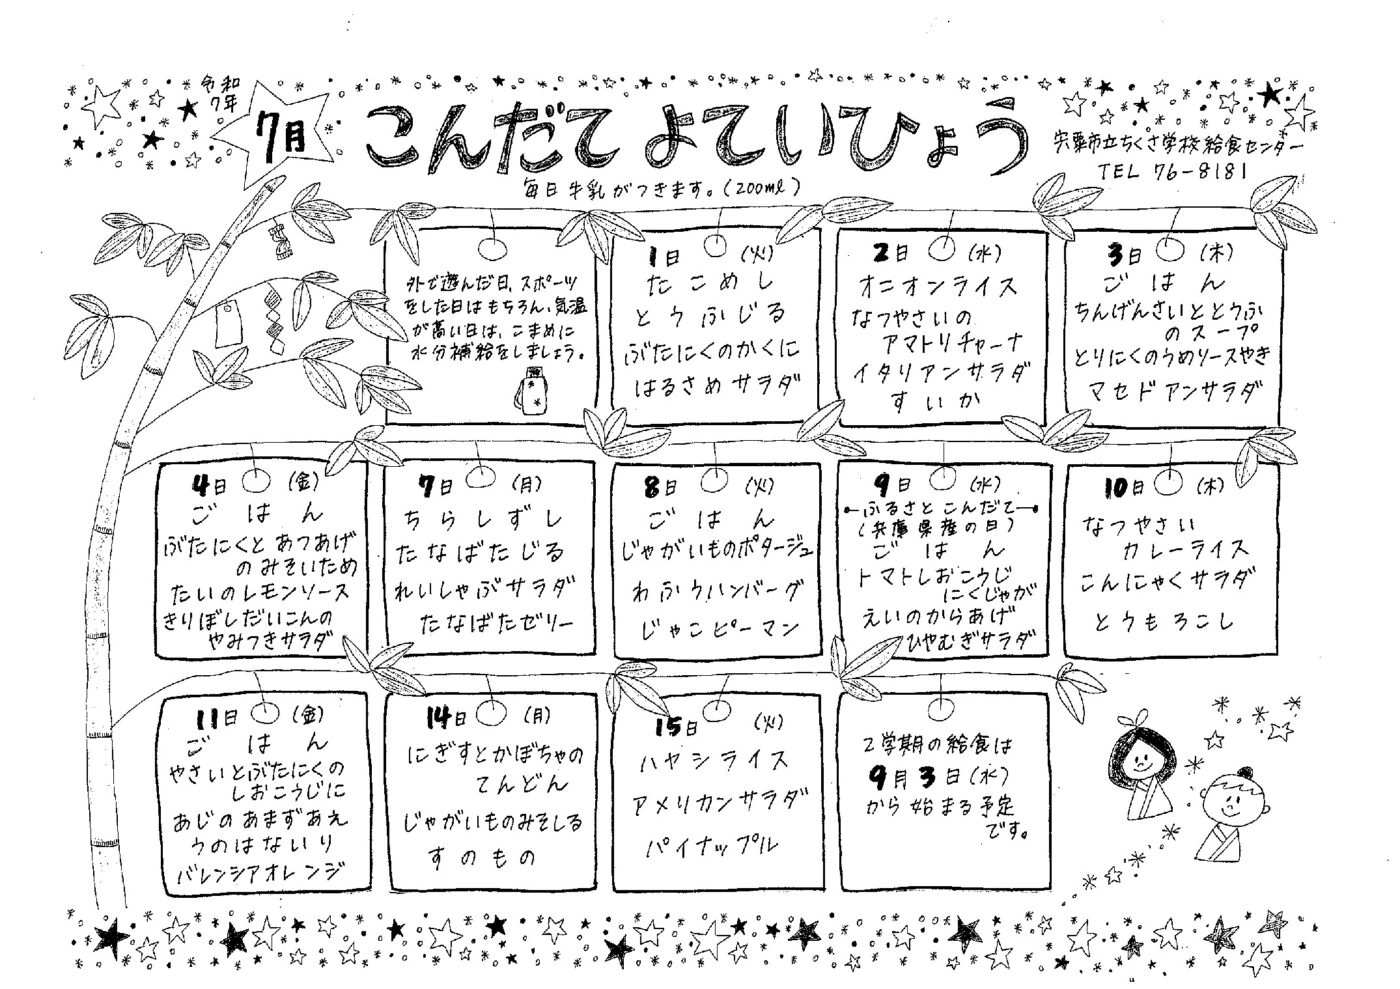 令和
7年
7月
こんだて よていひょう
宍粟市立ちくさ学校給食センター
TEL 76-8181
毎日 牛乳がつきます。(200ml)
外で遊んだ日、スポーツ
をした日はもちろん、気温
が高い日は、こまめに
水分補給をしましょう。
1日 (火)
たこめし
とうふじる
ぶたにくのかくに
はるさめサラダ
2日 (水)
オニオンライス
なつやさいの
アマトリチャーナ
イタリアンサラダ
すいか
3日 (木)
ごはん
ちんげんさいととうふ
のスープ
とりにくのうめソースやき
マセドアンサラダ
4日 (金)
ごはん
ぶたにくとあつあげ
のみそいため
たいのレモンソース
きりぼしだいこんの
やみつきサラダ
7日 (月)
ちらしずし
たなばたじる
れいしゃぶサラダ
たなばたゼリー
8日 (火)
ごはん
じゃがいものポタージュ
わふうハンバーグ
じゃこピーマン
9日 (水)
ふるさとこんだて
(兵庫県産の日)
ごはん
トマトしおこうじ
にくじゃが
えいのからあげ
ひやむぎサラダ
10日 (木)
なつやさい
カレーライス
こんにゃくサラダ
とうもろこし
11日 (金)
ごはん
やさいとぶたにくの
しおこうじに
あじのあまずあえ
うのはないり
バレンシアオレンジ
14日 (月)
にぎすとかぼちゃの
てんどん
じゃがいものみそしる
すのもの
15日 (火)
ハヤシライス
アメリカンサラダ
パイナップル
2学期の給食は
9月3日(水)
から始まる予定
です。